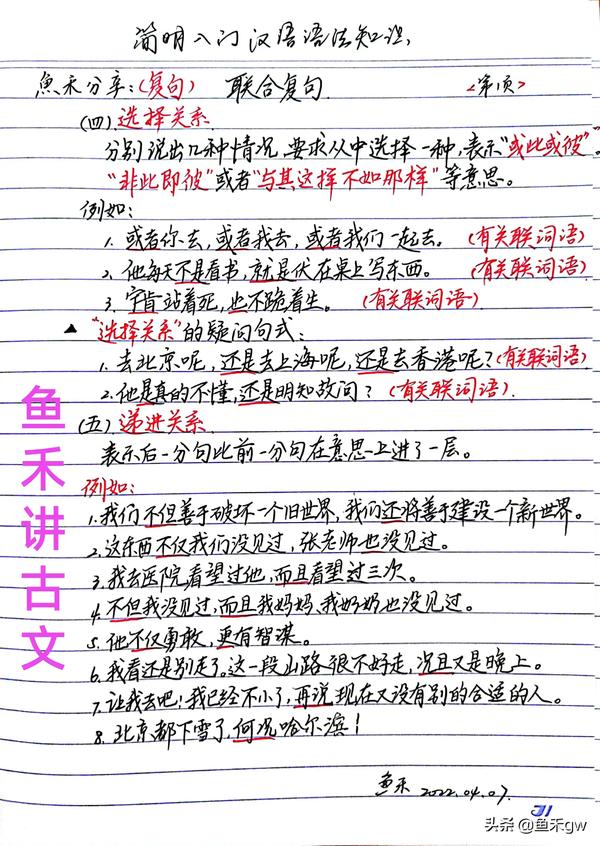 简明入门汉语语法知识
鱼禾分享:(复句) 联合复句 <第1页>
(四)选择关系
分别说出几种情况,要求从中选择一种,表示"或此或彼"。
"非此即彼"或者"与其这择不如那样"等意思。
例如:
1. 或者你去,或者我去,或者我们一起去。 (有关联词语)
2. 他每天不是看书,就是伏在桌上写东西。 (有关联词语)
3. 宁肯站着死,也不跪着生。 (有关联词语)
▲ "选择关系"的疑问句式:
1. 去北京呢,还是去上海呢,还是去香港呢?(有关联词语)
2. 他是真的不懂,还是明知故问? (有关联词语)
(五)递进关系
表示后一分句比前一分句在意思上进了一层。
例如:
1. 我们不但善于破坏一个旧世界,我们还将善于建设一个新世界。
2. 这东西不仅我们没见过,张老师也没见过。
3. 我去医院看望过他,而且看望过三次。
4. 不但我没见过,而且我妈妈、我奶奶也没见过。
5. 他不仅勇敢,更有智谋。
6. 我看还是别走了。这一段山路很不好走,况且又是晚上。
7. 让我去吧!我已经不小了,再说现在又没有别的合适的人。
8. 北京都下雪了,何况哈尔滨!
鱼禾 2022.04.07.
鱼禾讲古文
头条@鱼禾gw